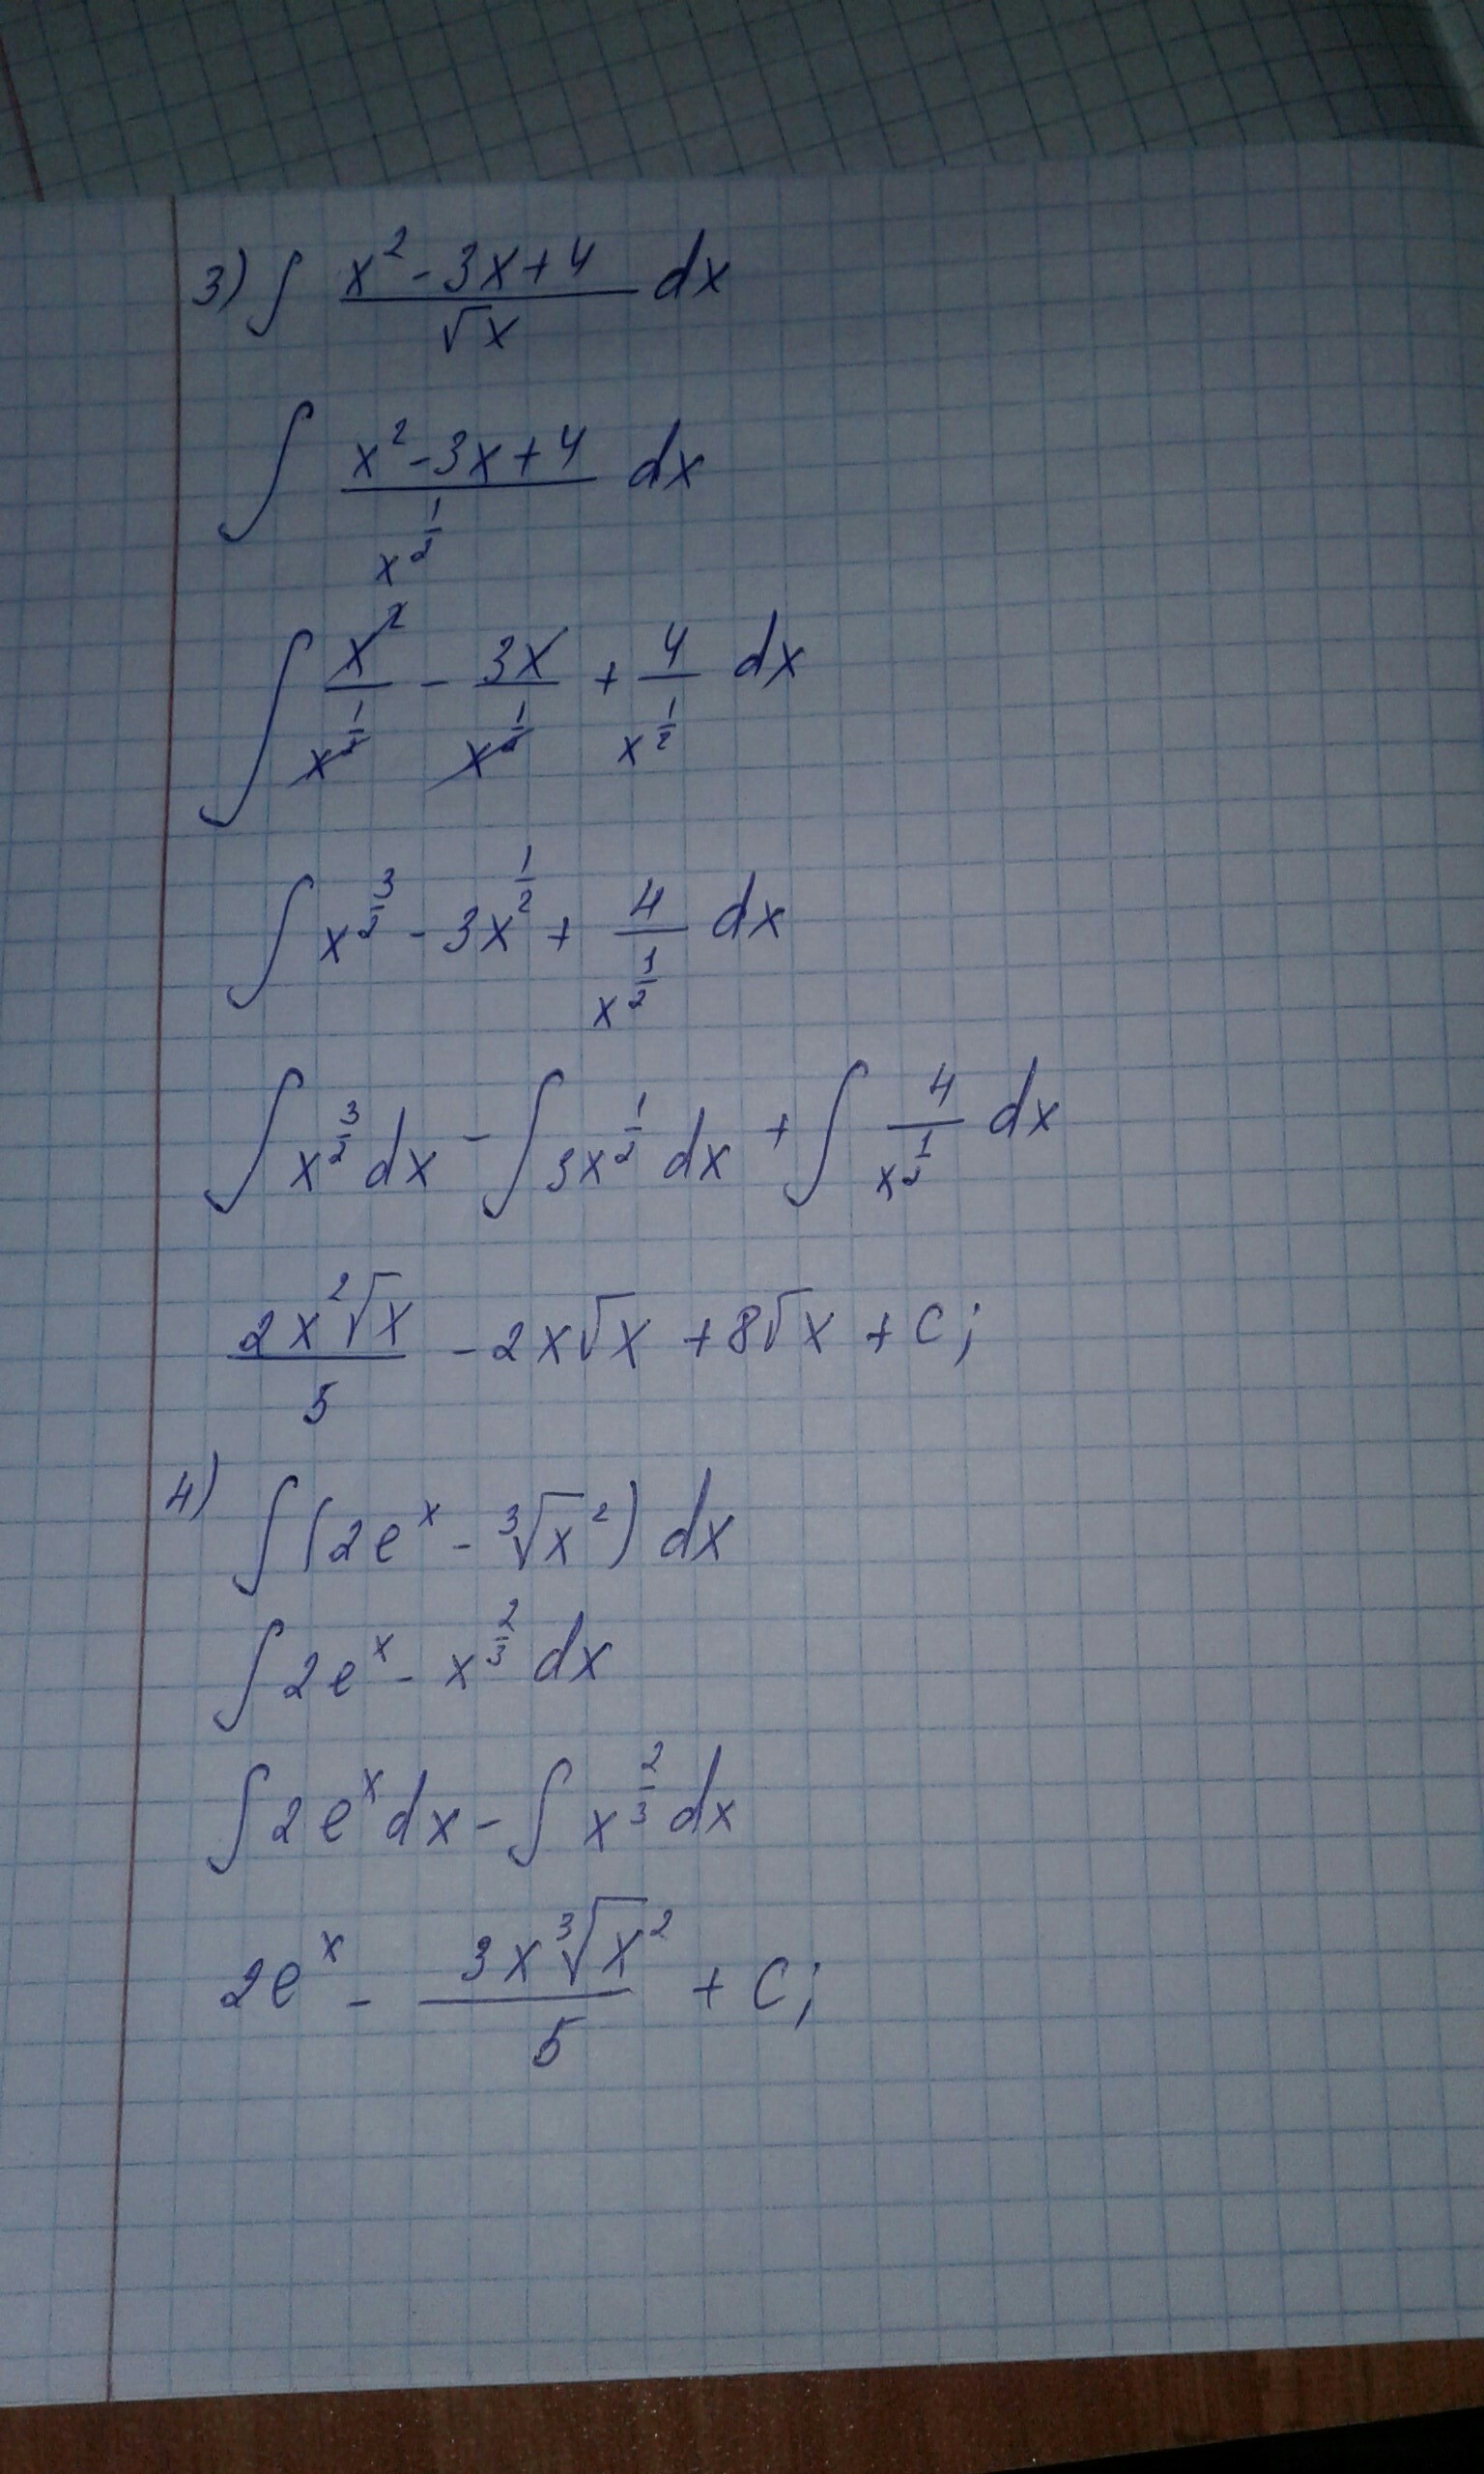 3) ∫ (x² - 3x + 4)/√x dx
∫ (x² - 3x + 4)/x^(1/2) dx
∫ x²/x^(1/2) - 3x/x^(1/2) + 4/x^(1/2) dx
∫ x^(3/2) - 3x^(1/2) + 4/x^(1/2) dx
∫ x^(3/2) dx - ∫ 3x^(1/2) dx + ∫ 4/x^(1/2) dx
2x²√x/5 - 2x√x + 8√x + C;
4) ∫ (2e^x - ³√x²) dx
∫ 2e^x - x^(2/3) dx
∫ 2e^x dx - ∫ x^(2/3) dx
2e^x - 3x ³√x²/5 + C;